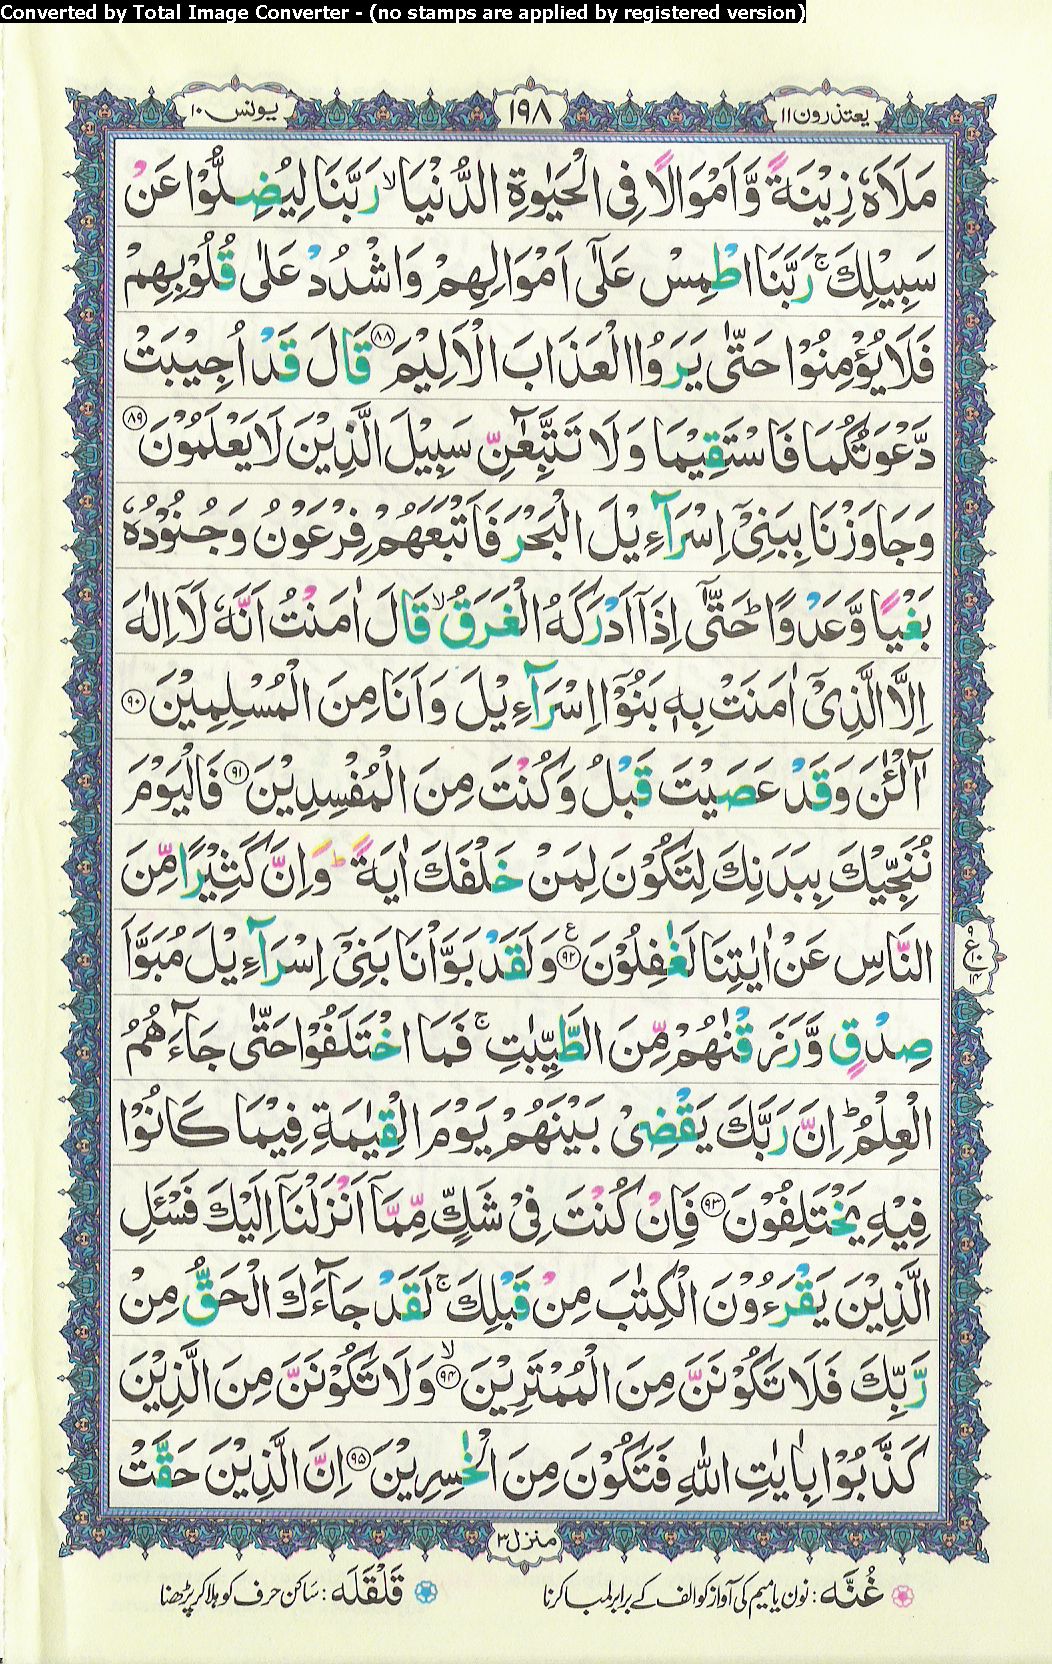 Converted by Total Image Converter - (no stamps are applied by registered version)
یعتذرون ۱۱
۱۹۸
یونس ۱۰
مَلَاَهٗ زِیْنَةً وَّاَمْوَالًا فِی الْحَیٰوةِ الدُّنْیَا ۙ رَبَّنَا لِیُضِلُّوْا عَنْ
سَبِیْلِكَ ۚ رَبَّنَا اطْمِسْ عَلٰۤی اَمْوَالِهِمْ وَاشْدُدْ عَلٰی قُلُوْبِهِمْ
فَلَا یُؤْمِنُوْا حَتّٰی یَرَوُا الْعَذَابَ الْاَلِیْمَ ۝۸۸ قَالَ قَدْ اُجِیْبَتْ
دَّعْوَتُكُمَا فَاسْتَقِیْمَا وَلَا تَتَّبِعٰٓنِّ سَبِیْلَ الَّذِیْنَ لَا یَعْلَمُوْنَ ۝۸۹
وَجَاوَزْنَا بِبَنِیْۤ اِسْرَآءِیْلَ الْبَحْرَ فَاَتْبَعَهُمْ فِرْعَوْنُ وَجُنُوْدُهٗ
بَغْیًا وَّعَدْوًا ؕ حَتّٰۤی اِذَاۤ اَدْرَكَهُ الْغَرَقُ ۙ قَالَ اٰمَنْتُ اَنَّهٗ لَاۤ اِلٰهَ
اِلَّا الَّذِیْۤ اٰمَنَتْ بِهٖ بَنُوْۤا اِسْرَآءِیْلَ وَاَنَا مِنَ الْمُسْلِمِیْنَ ۝۹۰
آٰلْـٰٔنَ وَقَدْ عَصَیْتَ قَبْلُ وَكُنْتَ مِنَ الْمُفْسِدِیْنَ ۝۹۱ فَالْیَوْمَ
نُنَجِّیْكَ بِبَدَنِكَ لِتَكُوْنَ لِمَنْ خَلْفَكَ اٰیَةً ؕ وَاِنَّ كَثِیْرًا مِّنَ
النَّاسِ عَنْ اٰیٰتِنَا لَغٰفِلُوْنَ ۝۹۲ ع وَلَقَدْ بَوَّاْنَا بَنِیْۤ اِسْرَآءِیْلَ مُبَوَّاَ
صِدْقٍ وَّرَزَقْنٰهُمْ مِّنَ الطَّیِّبٰتِ ۚ فَمَا اخْتَلَفُوْا حَتّٰی جَآءَهُمُ
الْعِلْمُ ؕ اِنَّ رَبَّكَ یَقْضِیْ بَیْنَهُمْ یَوْمَ الْقِیٰمَةِ فِیْمَا كَانُوْا
فِیْهِ یَخْتَلِفُوْنَ ۝۹۳ فَاِنْ كُنْتَ فِیْ شَكٍّ مِّمَّاۤ اَنْزَلْنَاۤ اِلَیْكَ فَسْـَٔلِ
الَّذِیْنَ یَقْرَءُوْنَ الْكِتٰبَ مِنْ قَبْلِكَ ۚ لَقَدْ جَآءَكَ الْحَقُّ مِنْ
رَّبِّكَ فَلَا تَكُوْنَنَّ مِنَ الْمُمْتَرِیْنَ ۝۹۴ ۙ وَلَا تَكُوْنَنَّ مِنَ الَّذِیْنَ
كَذَّبُوْا بِاٰیٰتِ اللّٰهِ فَتَكُوْنَ مِنَ الْخٰسِرِیْنَ ۝۹۵ اِنَّ الَّذِیْنَ حَقَّتْ
۹ ع ۱۰ ۱۴
منزل ۳
غُنَّه : نون یا میم کی آواز کو الف کے برابر لمبا کرنا
قَلْقَلَه : ساکن حرف کو ہلا کر پڑھنا